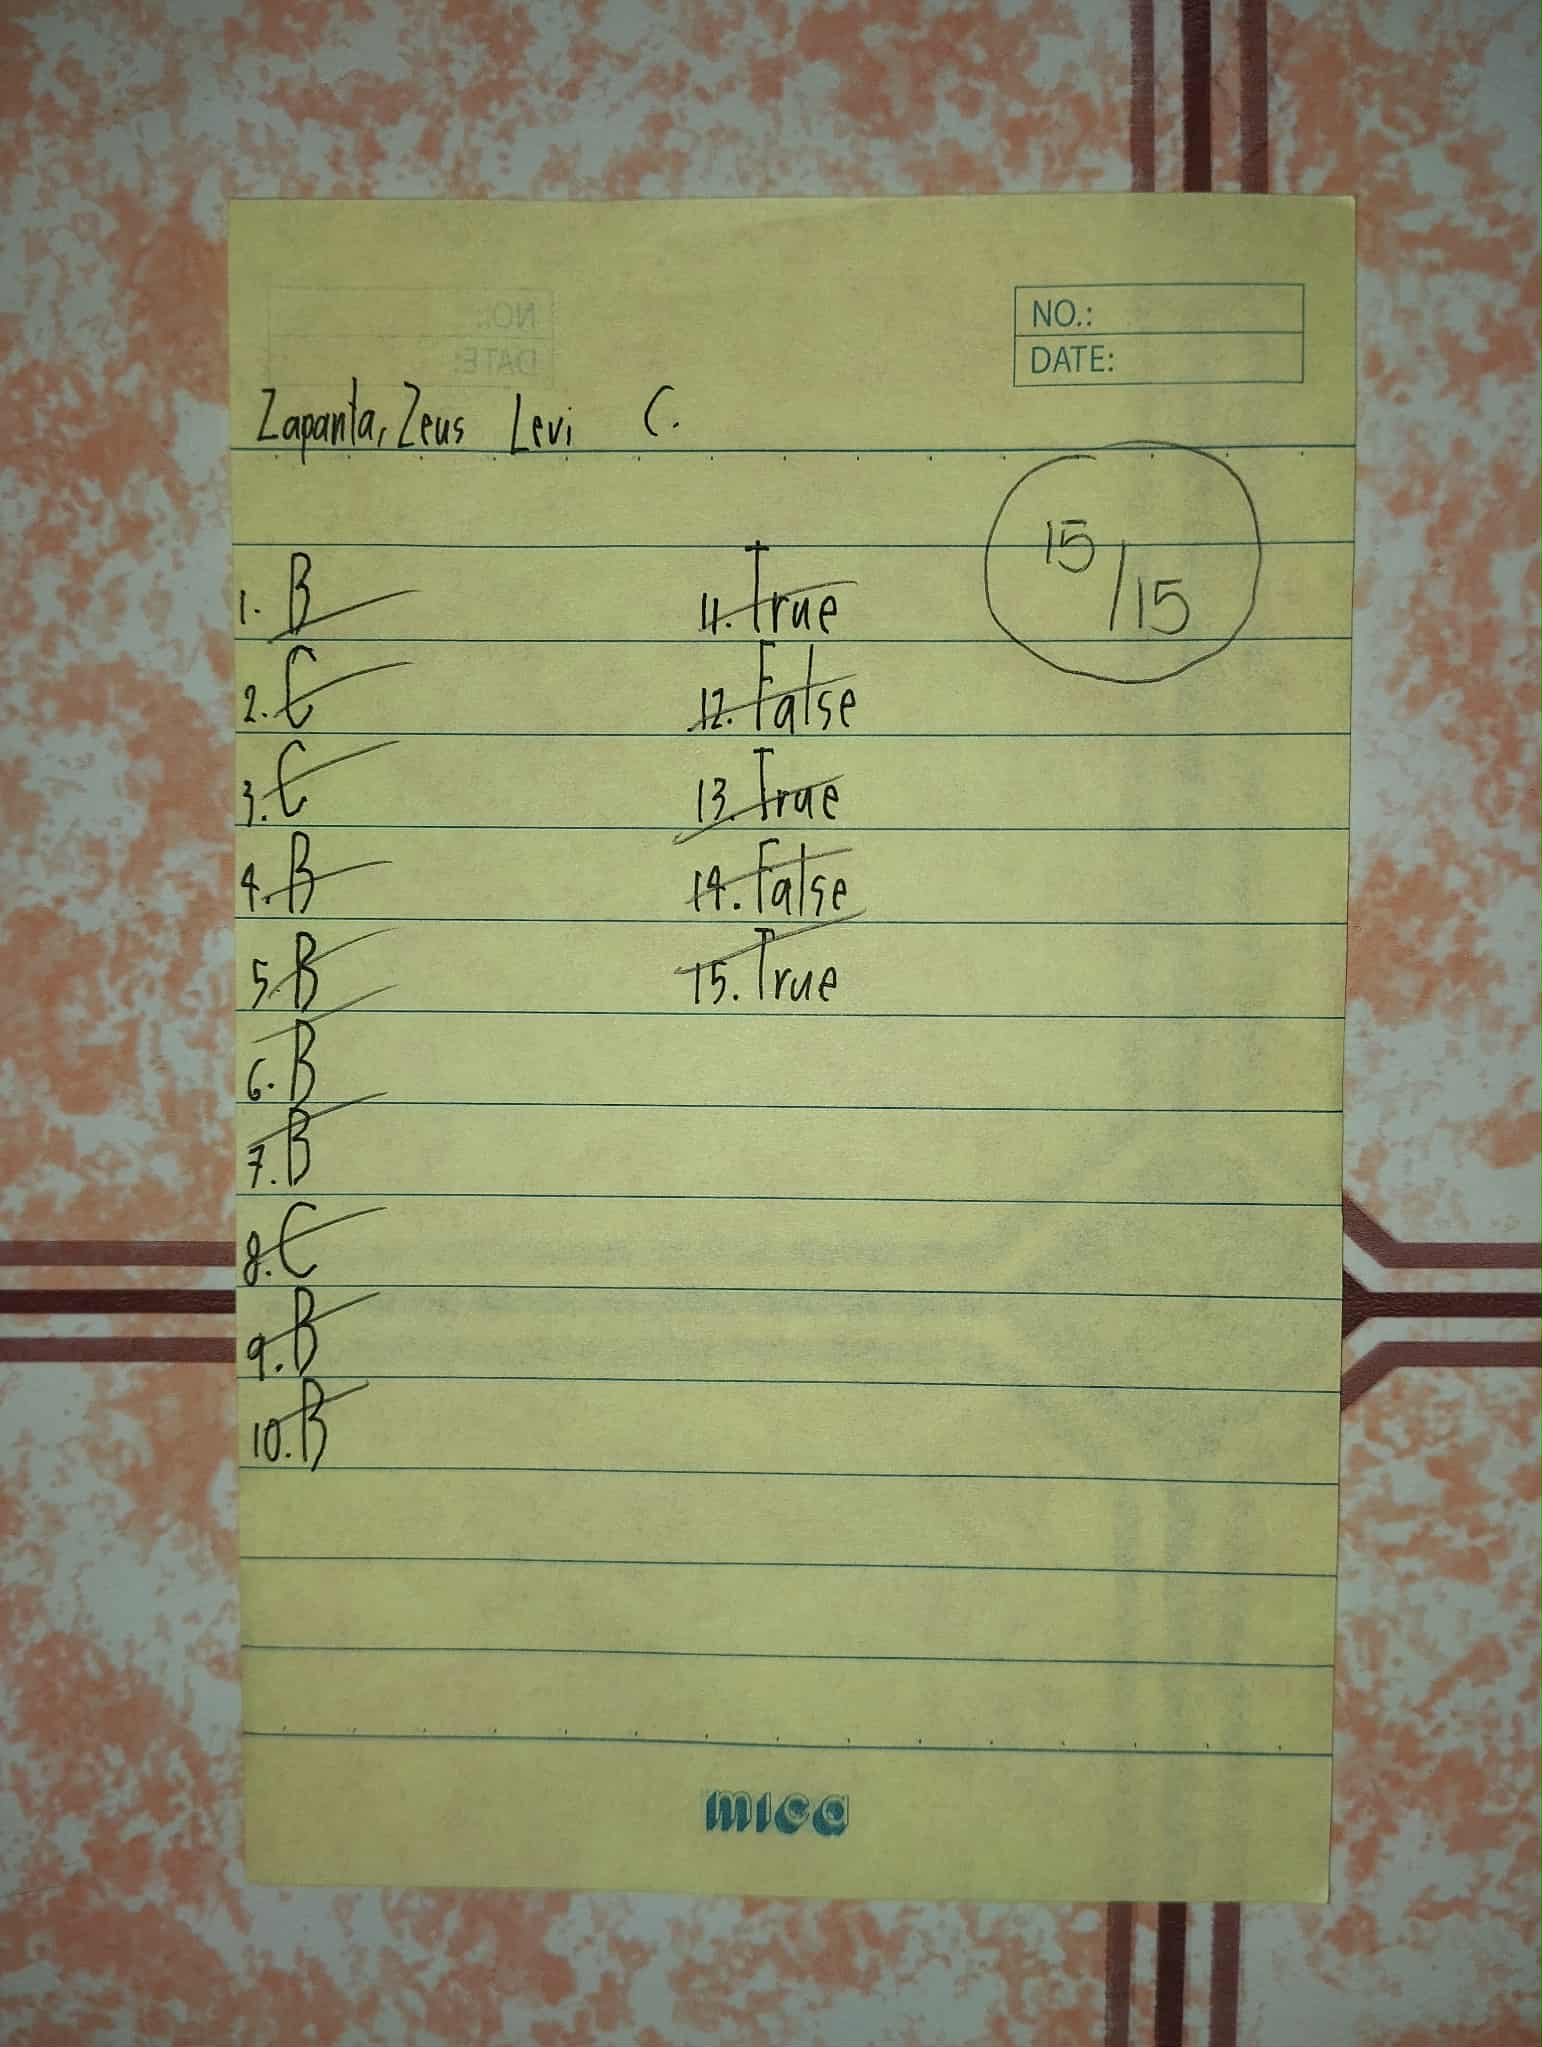 NO.:
DATE:
Zapanta, Zeus Levi C.
15/15
1. B
2. C
3. C
4. B
5. B
6. B
7. B
8. C
9. B
10. B
11. True
12. False
13. True
14. False
15. True
mica